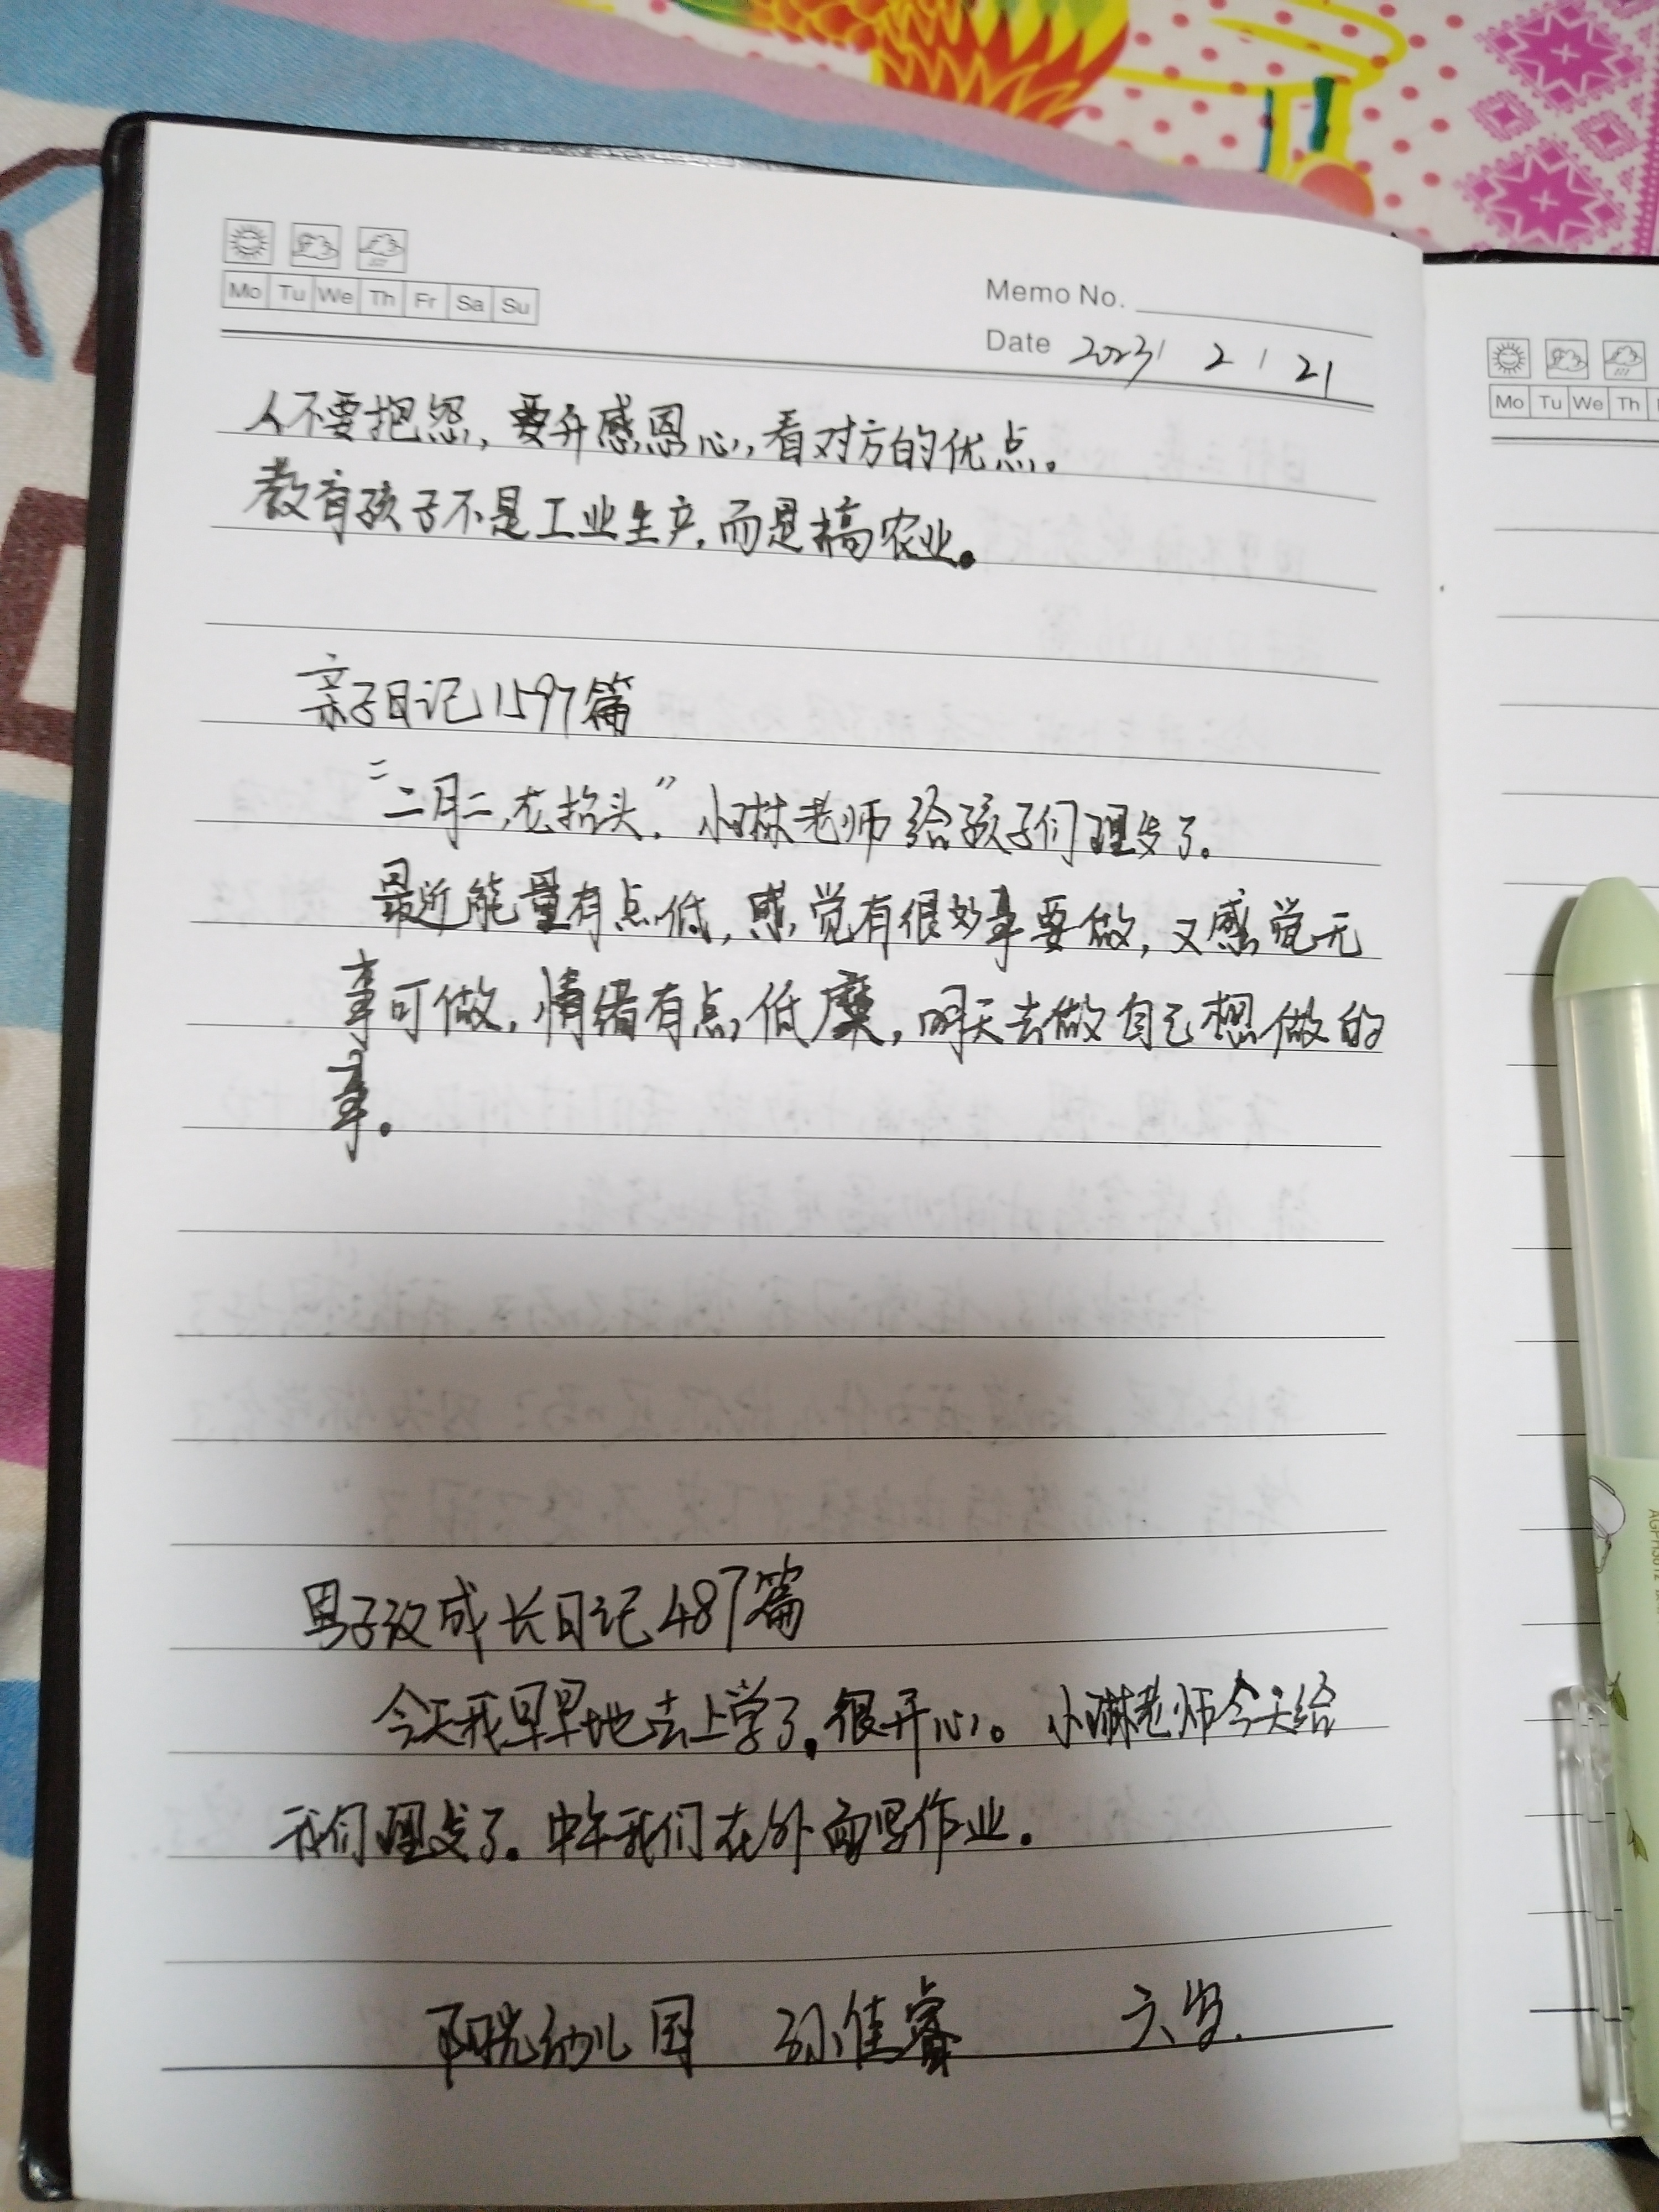 Mo Tu We Th Fr Sa Su
Memo No.
Date 2023/ 2 / 21
人不要把怨，要升感恩心，看对方的优点。
教育孩子不是工业生产，而是搞农业。
亲子日记1597篇
“二月二，龙抬头，”小琳老师给孩子们理发了。
最近能量有点低，感觉有很多事要做，又感觉无
事可做，情绪有点低糜，明天去做自己想做的
事。
男子汉成长日记487篇
今天我早早地去上学了，很开心。小琳老师今天给
我们理发了。中午我们在外面写作业。
阳光幼儿园 孙佳睿 六岁.
Mo Tu We Th